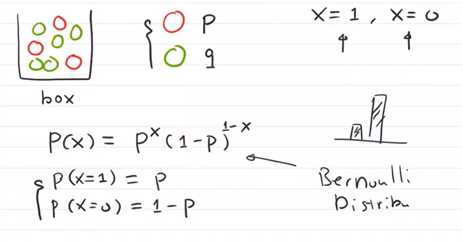 p
q
x = 1 , x = 0
box
P(x) = p^x (1-p)^{1-x}
p(x=1) = p
p(x=0) = 1-p
Bernoulli
Distribu